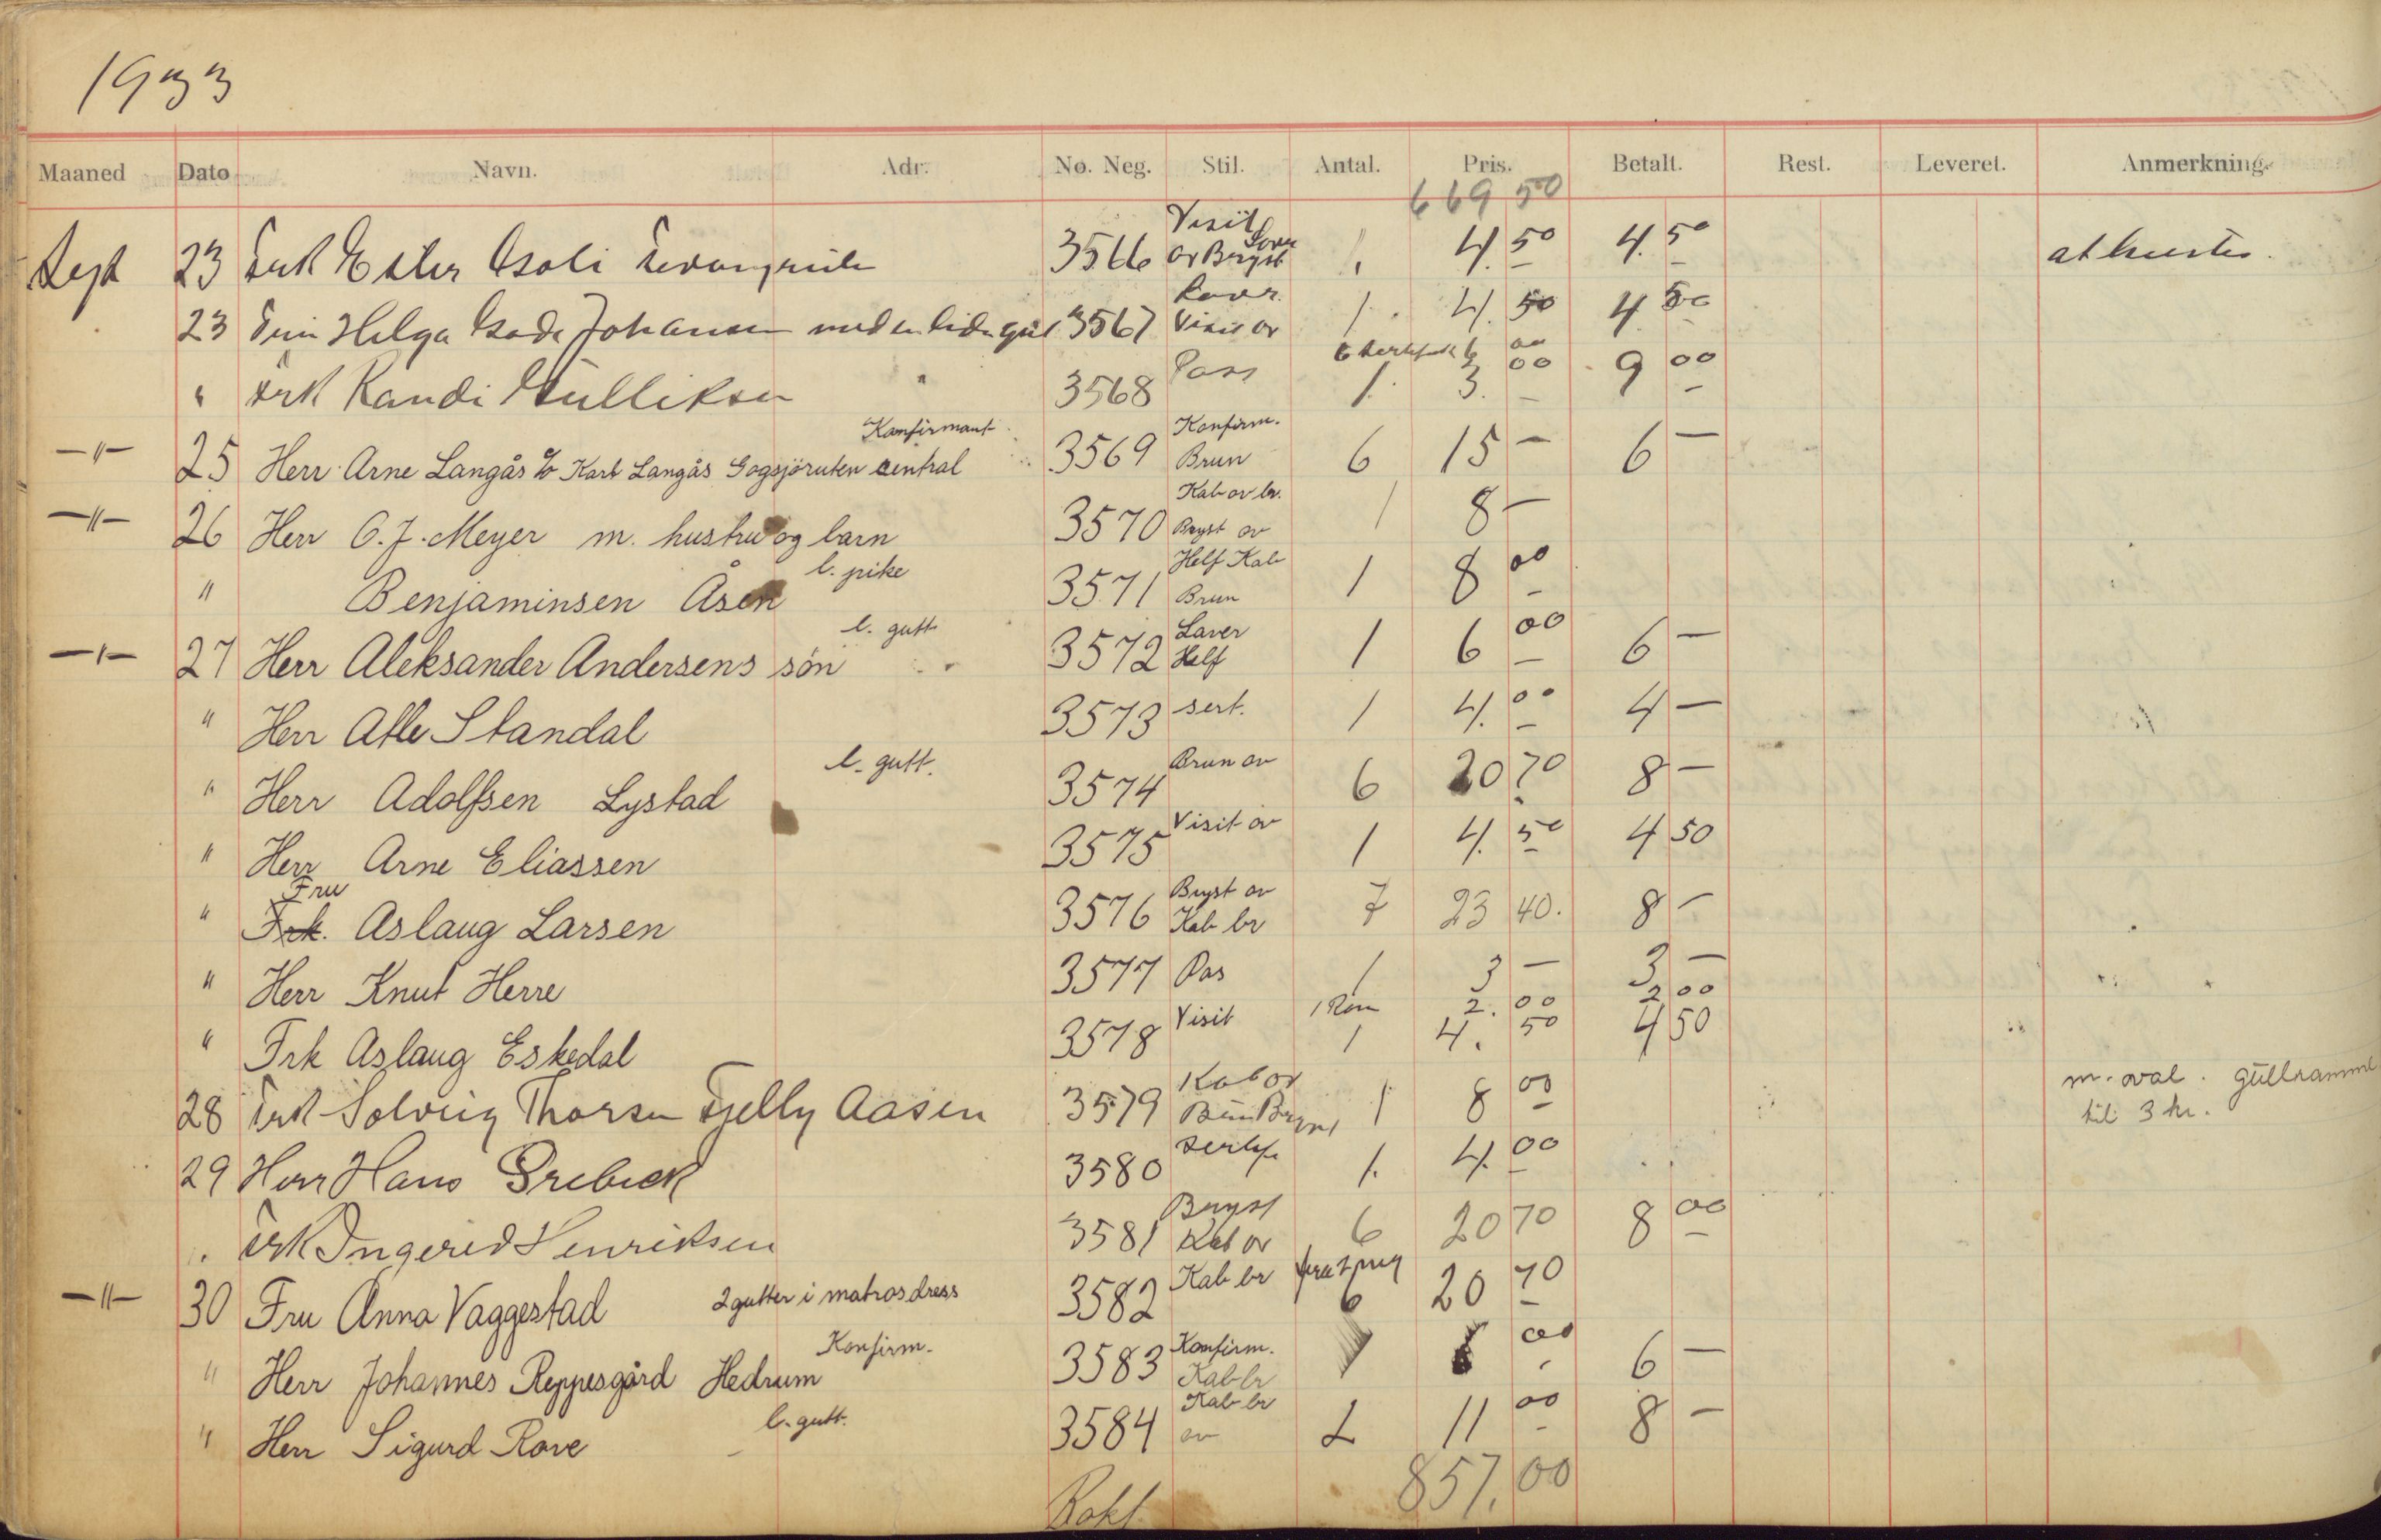 1933
Maaned Dato Navn. Adr. No. Neg. Stil. Antal. Pris. Betalt. Rest. Leveret. Anmerkning.
669 50
Sept 23 Frk Ester 3566 Visit Laver ov Bryst 1 4. 50 4. 50
23 Helga Johansen med en liden gut 3567 Laver. Visit ov 1. 4. 50 4. 50
6 6 00
" Frk Randi Gulliksen 3568 Pass 1. 3. 00 9 00
—"— 25 Herr Arne Langås c/o Karl Langås Gogsjöruten central Konfirmant 3569 Konfirm. Brun 6 15 — 6 —
—"— 26 Herr O. J. Meyer m. hustru og barn 3570 Kab ov br. Bryst ov 1 8 —
" Benjaminsen Åsen l. pike 3571 Helf Kab Brun 1 8 00
—"— 27 Herr Aleksander Andersens sön l. gutt 3572 Laver Helf 1 6 00 6 —
" Herr Atle Standal 3573 sert. 1 4. 00 4 —
" Herr Adolfsen Lystad l. gutt. 3574 Brun ov 6 20 70 8 —
" Herr Arne Eliassen 3575 Visit ov 1 4. 50 4 50
" Frk. Fru Aslaug Larsen 3576 Bryst ov Kab br 7 23 40. 8 —
" Herr Knut Herre 3577 Pas 1 3 — 3 —
1 2. 00 2 00
" Frk Aslaug Eskedal 3578 Visit 1 4. 50 4 50
28 Frk Solveig Thorsen Fjelly Aasen 3579 Kab ov Brun Bryst 1 8 00 m. oval. gullramme til 3 kr.
29 Herr Hans Grebick 3580 1. 4. 00
" Frk Ingerid Henriksen 3581 Bryst Kab ov 6 20 70 8 00
—"— 30 Fru Anna Vaggestad 2 gutter i matrosdress 3582 Kab br 6 20 70
" Herr Johannes Reppesgård Hedrum Konfirm. 3583 Konfirm. Kab br 00 6 —
" Herr Sigurd Rove l. gutt. 3584 Kab br ov 2 11 00 8 —
857,00